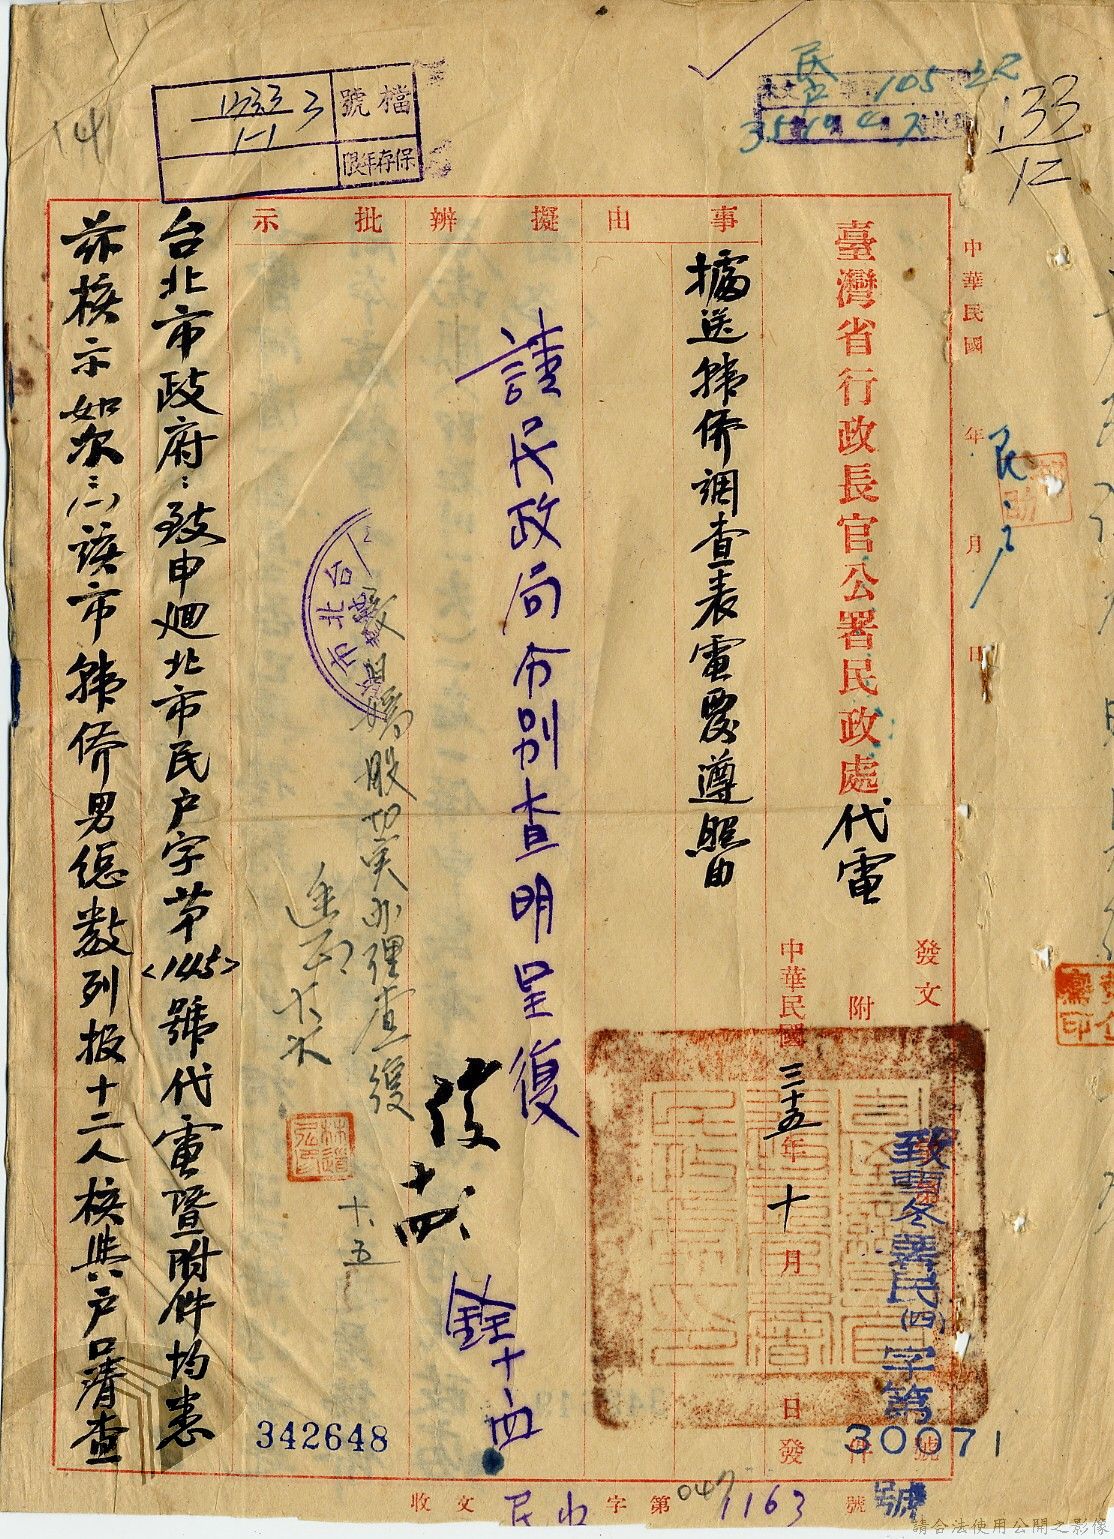 臺灣省行政長官公署民政處代電
發文
附件
致酉冬署民(四)字第30071號
中華民國三十五年十月 日發
事由
據送韓僑調查表電覆遵照由
擬辦
謹民政局分別查明呈復
批示
切实办理查復
十、五
台北市
林道
342648
台北市政府：致申迴北市民户字第<145>號代電暨附件均悉
茲核示如次(一)該市韓僑男總數列報十二人核與户口清查
檔號
1-1
3
保存年限
141
105
133
12
中華民國 年 月 日
收文 民 字第 1163 號
請合法使用公開之影像